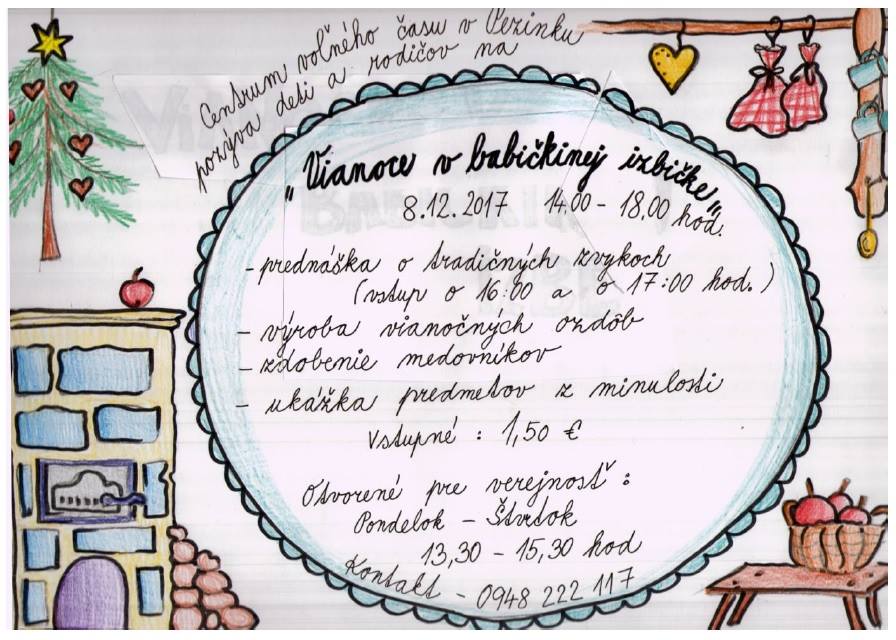 Centrum voľného času v Pezinku
pozýva deti a rodičov na
"Vianoce v babičkinej izbičke"
8.12.2017 14.00 - 18.00 hod.
- prednáška o tradičných zvykoch
(vstup o 16:00 a o 17:00 hod.)
- výroba vianočných ozdôb
- zdobenie medovníkov
- ukážka predmetov z minulosti
Vstupné : 1,50 €
Otvorené pre verejnosť :
Pondelok - Štvrtok
13,30 - 15,30 hod
Kontakt - 0948 222 117